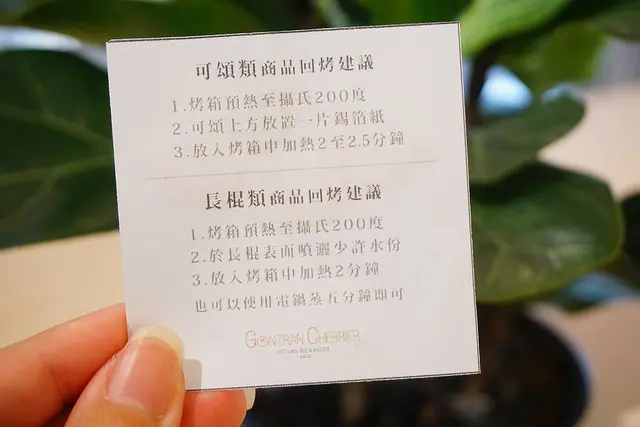 可頌類商品回烤建議
1.烤箱預熱至攝氏200度
2.可頌上方放置一片錫箔紙
3.放入烤箱中加熱2至2.5分鐘
長棍類商品回烤建議
1.烤箱預熱至攝氏200度
2.於長棍表面噴灑少許水份
3.放入烤箱中加熱2分鐘
也可以使用電鍋蒸五分鐘即可
GONTRAN CHERRIER
ARTISAN BOULANGER
PARIS